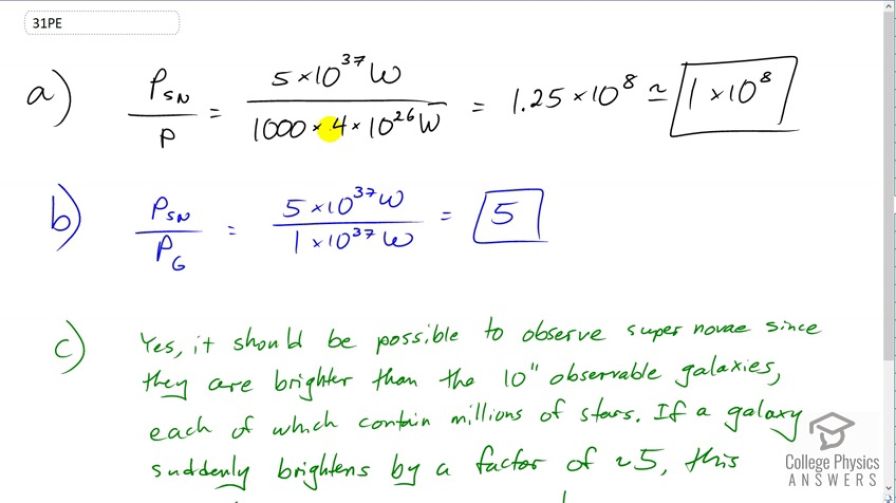 31PE
a) P_SN / P = 5 × 10^37 W / 1000 × 4 × 10^26 W = 1.25 × 10^8 ≃ 1 × 10^8
b) P_SN / P_G = 5 × 10^37 W / 1 × 10^37 W = 5
c) Yes, it should be possible to observe super novae since
they are brighter than the 10^11 observable galaxies,
each of which contain millions of stars. If a galaxy
suddenly brightens by a factor of ~5, this
College Physics
ANSWERS